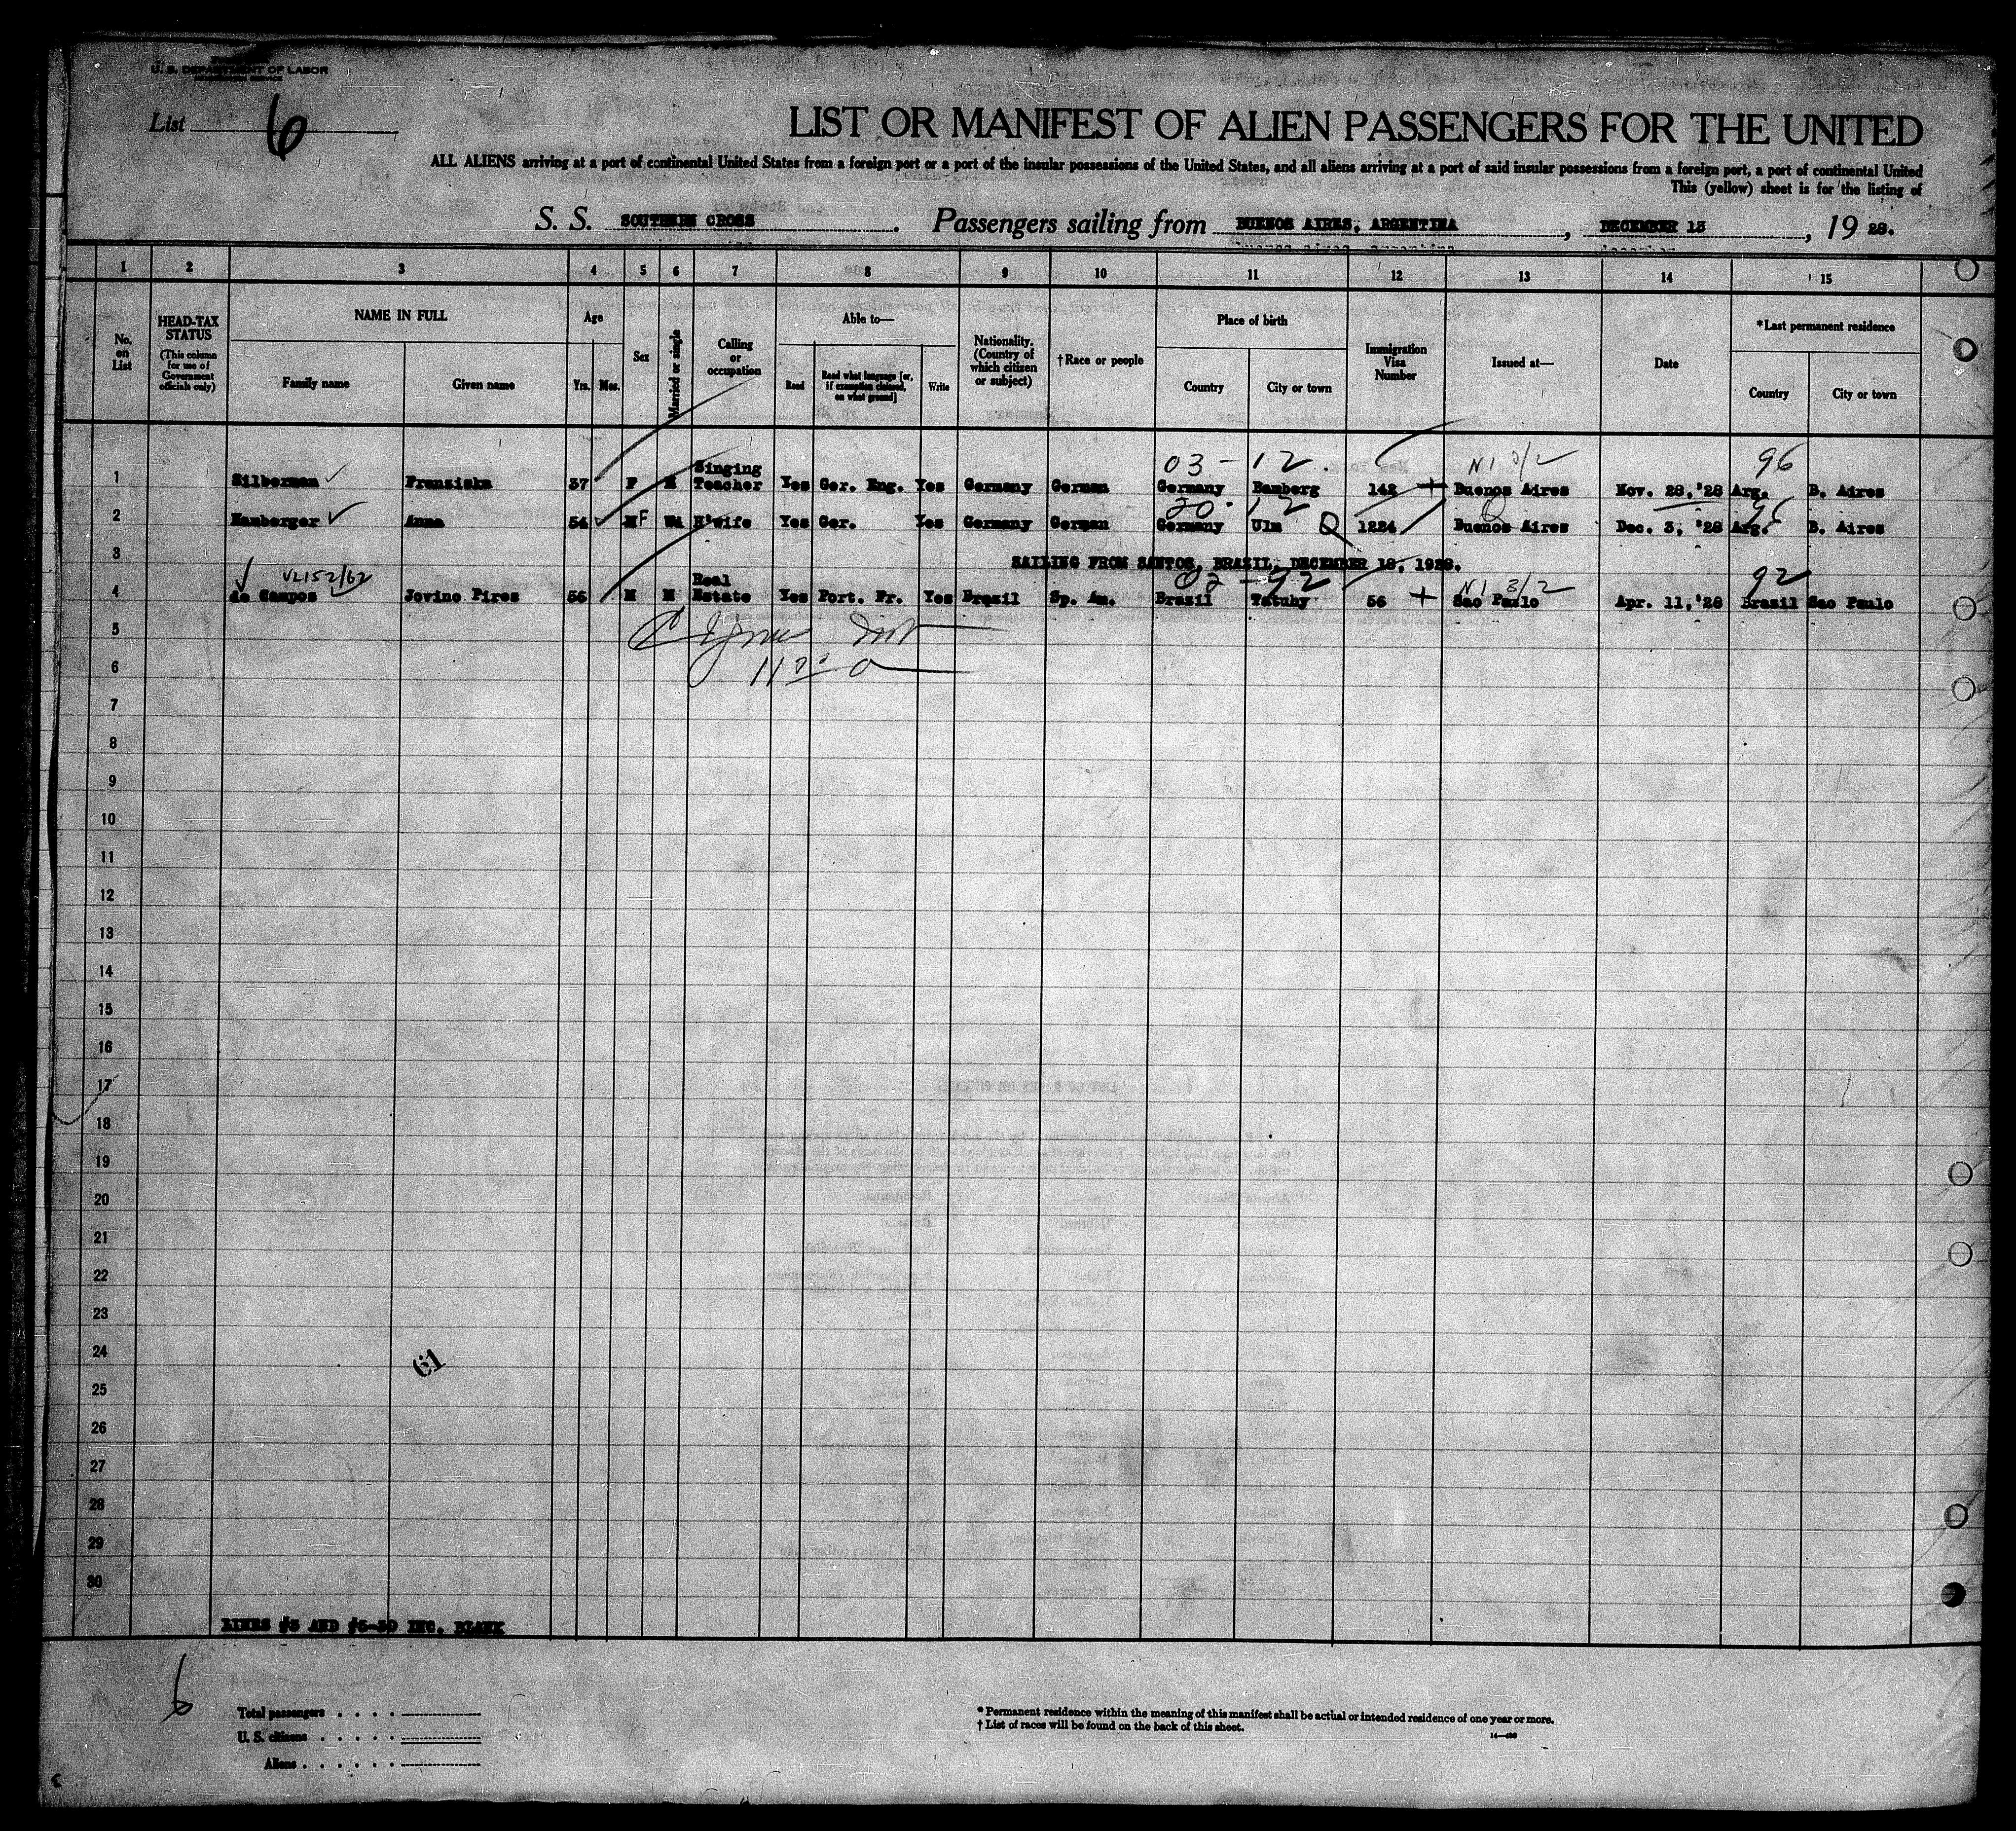 U. S. DEPARTMENT OF LABOR
List 6
LIST OR MANIFEST OF ALIEN PASSENGERS FOR THE UNITED
ALL ALIENS arriving at a port of continental United States from a foreign port or a port of the insular possessions of the United States, and all aliens arriving at a port of said insular possessions from a foreign port, a port of continental United
This (yellow) sheet is for the listing of
S. S. SOUTHERN CROSS. Passengers sailing from BUENOS AIRES, ARGENTINA, DECEMBER 13, 19 28.
1 2 3 4 5 6 7 8 9 10 11 12 13 14 15
No. on List
HEAD-TAX STATUS (This column for use of Government officials only)
NAME IN FULL
Family name Given name
Age
Yrs. Mos.
Sex
Married or single
Calling or occupation
Able to—
Read Read what language [or, if exemption claimed, on what ground] Write
Nationality. (Country of which citizen or subject)
†Race or people
Place of birth
Country City or town
Immigration Visa Number
Issued at—
Date
*Last permanent residence
Country City or town
03 - 12. 96
1 Silberman Fransiska 37 F M Singing Teacher Yes Ger. Eng. Yes Germany German Germany Bamberg 142 Buenos Aires Nov. 28, '28 Arg. B. Aires
20 - 12 96
2 Hamberger Anna 54 M F Wd H'wife Yes Ger. Yes Germany German Germany Ulm Q 1224 Buenos Aires Dec. 3, '28 Arg. B. Aires
3 SAILING FROM SANTOS, BRASIL, DECEMBER 18, 1928.
VL152/62 02 - 92 N I 3/2 92
4 de Campos Jovino Pires 56 M M Real Estate Yes Port. Fr. Yes Brasil Sp. Am. Brasil Tatuhy 56 Sao Paulo Apr. 11, '28 Brasil Sao Paulo
5
6
7
8
9
10
11
12
13
14
15
16
17
18
19
20
21
22
23
24
61
25
26
27
28
29
30
LINES #3 AND #5-30 INC. BLANK
6
Total passengers . . . .
U. S. citizens . . . . .
Aliens . . . . . .
* Permanent residence within the meaning of this manifest shall be actual or intended residence of one year or more.
† List of races will be found on the back of this sheet.